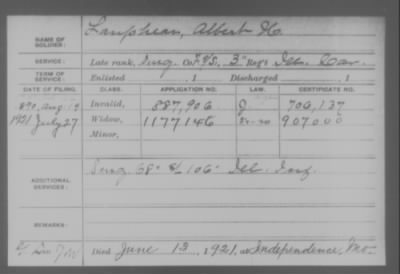 NAME OF SOLDIER: Lamphear, Albert H.
SERVICE: Late rank, Surg. 3" Reg't Ill. Cav.
TERM OF SERVICE: Enlisted , 1 Discharged , 1
DATE OF FILING. CLASS. APPLICATION NO. LAW. CERTIFICATE NO.
1890, Aug 19 Invalid, 887,906 J 706,137
1921 July 27 Widow, 1177146 907000
Minor,
ADDITIONAL SERVICES: Surg. 68" & 106" Ill. Inf.
REMARKS:
Died June 13, 1921, at Independence, Mo.